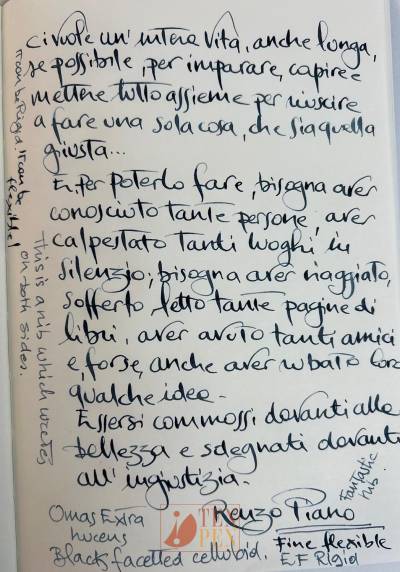 ci vuole un' intera vita, anche lunga,
se possibile, per imparare, capire e
mettere tutto assieme per riuscire
a fare una sola cosa, che sia quella
giusta...
E, per poterlo fare, bisogna aver
conosciuto tante persone, aver
calpestato tanti luoghi in
silenzio; bisogna aver viaggiato,
sofferto, letto tante pagine di
libri, aver avuto tanti amici
e, forse, anche aver rubato loro
qualche idea.
Essersi commossi davanti alla
bellezza e sdegnati davanti
all' ingiustizia.
Renzo Piano
Omas Extra
lucens
Black faceted celluloid.
Fine flexible
E F Rigid
Fantastic
nib.
It can be Rigid. It can be
flexible!
This is a nib which writes
on both sides.